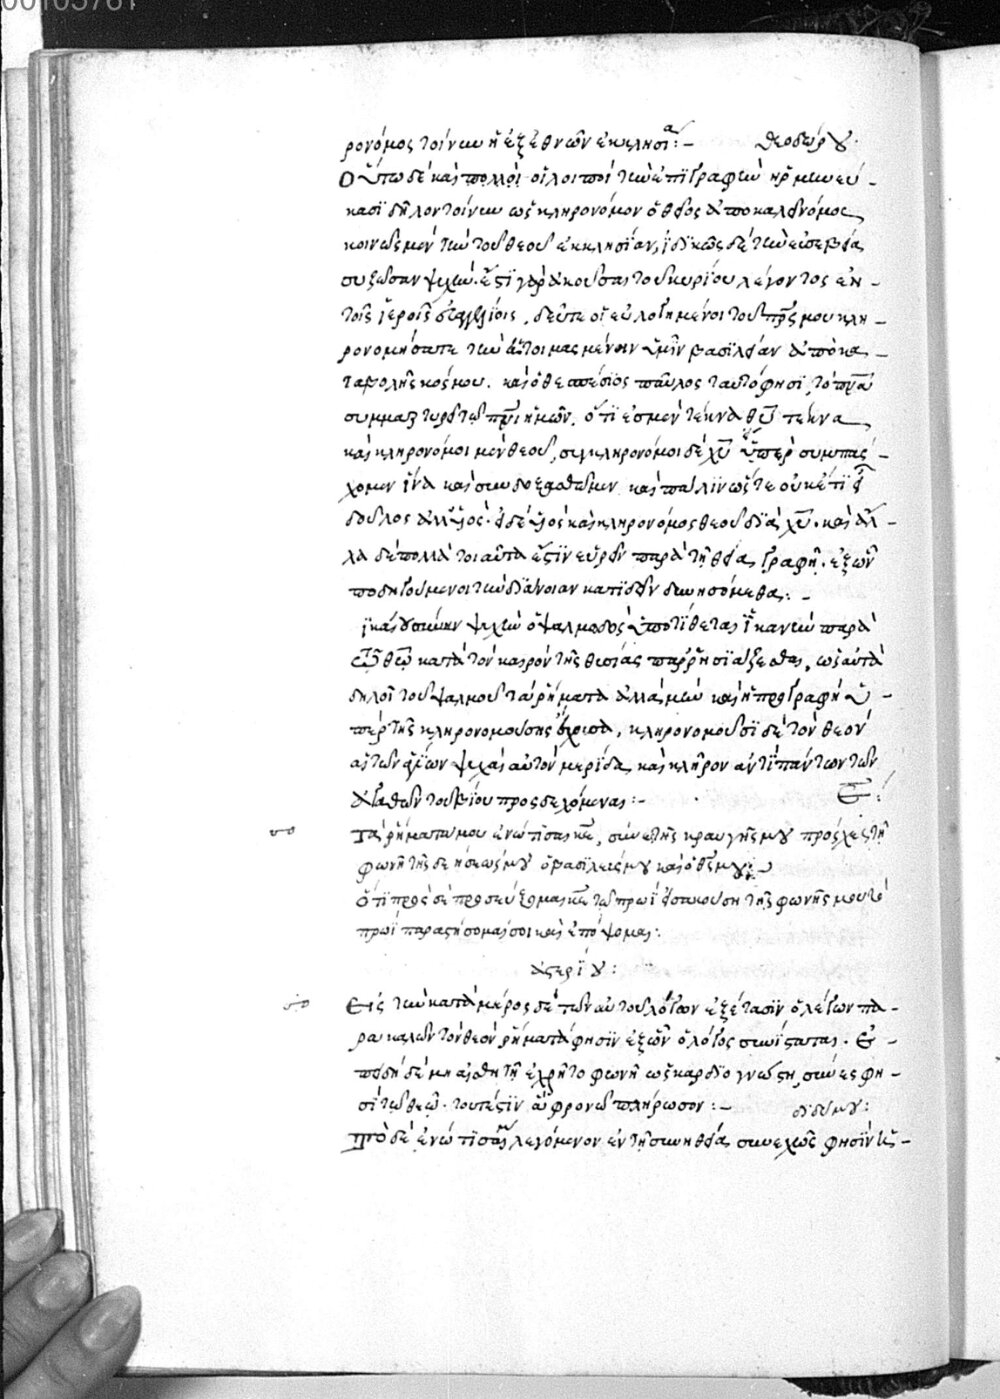 00105761
ρονόμος τοίνυν ἡ ἐξ ἐθνῶν ἐκκλησία:– θεοδώρου:
Οὕτω δὲ καὶ πολλοὶ οἱ λοιποὶ τὴν ἐπιγραφὴν ἡρμηνεύ-
κασι δῆλον τοίνυν ὡς κληρονόμον ὁ θεῖος ἀποκαλεῖ νόμος
κοινῶς μὲν τὴν τοῦ θεοῦ ἐκκλησίαν, ἰδικῶς δὲ τὴν εὐσεβείᾳ
συζῶσαν ψυχήν. ἔστι γὰρ ἀκοῦσαι τοῦ κυρίου λέγοντος ἐν
τοῖς ἱεροῖς εὐαγγελίοις, δεῦτε οἱ εὐλογημένοι τοῦ πρς μου κλη-
ρονομήσατε τὴν ἡτοιμασμένην ὑμῖν βασιλείαν ἀπὸ κα-
ταβολῆς κόσμου. καὶ ὁ θεσπέσιος παῦλος ταυτό φησι, τὸ πνα
συμμαρτυρεῖ τῷ πνι ἡμῶν, ὅτι ἐσμὲν τέκνα θυ τέκνα
καὶ κληρονόμοι μὲν θεοῦ, συγκληρονόμοι δὲ χυ εἴπερ συμπάσ-
χομεν ἵνα καὶ συνδοξασθῶμεν καὶ πάλιν ὥστε οὐκέτι εἶ
δοῦλος ἀλλ' υἱός. εἰ δὲ υἱὸς καὶ κληρονόμος θεοῦ διὰ χυ. καὶ ἄλ-
λα δὲ πολλὰ τοιαῦτα ἔστιν εὑρεῖν παρὰ τῇ θείᾳ γραφῇ. ἐξ ὧν
ποδηγούμενοι τὴν διάνοιαν κατιδεῖν δυνησόμεθα:–
ψυχὴν ὁ ψαλμῳδὸς ὑποτίθεται ἱκανὴν παρὰ
τῷ θεῷ κατὰ τὸν καιρὸν τῆς θυσίας παρρησιάζεσθαι, ὡς αὐτὰ
δηλοῖ τοῦ ψαλμοῦ τὰ ῥήματα ἀλλὰ μὴν καὶ ἡ προγραφὴ ὑ-
πὲρ τῆς κληρονομούσης ἔχουσα, κληρονομοῦσι δὲ τὸν θεὸν
αἱ τῶν ἁγίων ψυχαὶ αὐτὸν μερίδα καὶ κλῆρον ἀντὶ πάντων τῶν
ἀγαθῶν τοῦ βίου προσδεχόμεναι:–
Τὰ ῥήματά μου ἐνώτισαι κε, σύνες τῆς κραυγῆς μου πρόσχες τῇ
φωνῇ τῆς δεήσεώς μου ὁ βασιλεύς μου καὶ ὁ θς μου:
Ὅτι πρὸς σὲ προσεύξομαι κε τὸ πρωῒ εἰσακούσῃ τῆς φωνῆς μου τὸ
πρωῒ παραστήσομαί σοι καὶ ἐπόψομαι:
ἀστερίου:
Εἰς τὴν κατὰ μέρος δὲ τῶν αὐτοῦ λόγων ἐξέτασιν ὀλίγων πα-
ρακαλῶν τὸν θεὸν ῥήματά φησιν ἐξ ὧν ὁ λόγος συνίσταται. Ἐ-
πειδὴ δὲ μὴ αἰσθητῇ ἐχρῆτο φωνῇ ὡς καρδιογνώστῃ, σύνες φη-
σὶ τῷ θεῷ. τουτέστιν ἃ φρονῶ πλήρωσον:– διδύμου:
Πρὸ δὲ ἐνώτισαι λεγόμενον ἐν τῇ συνηθείᾳ συνεχῶς φησὶν